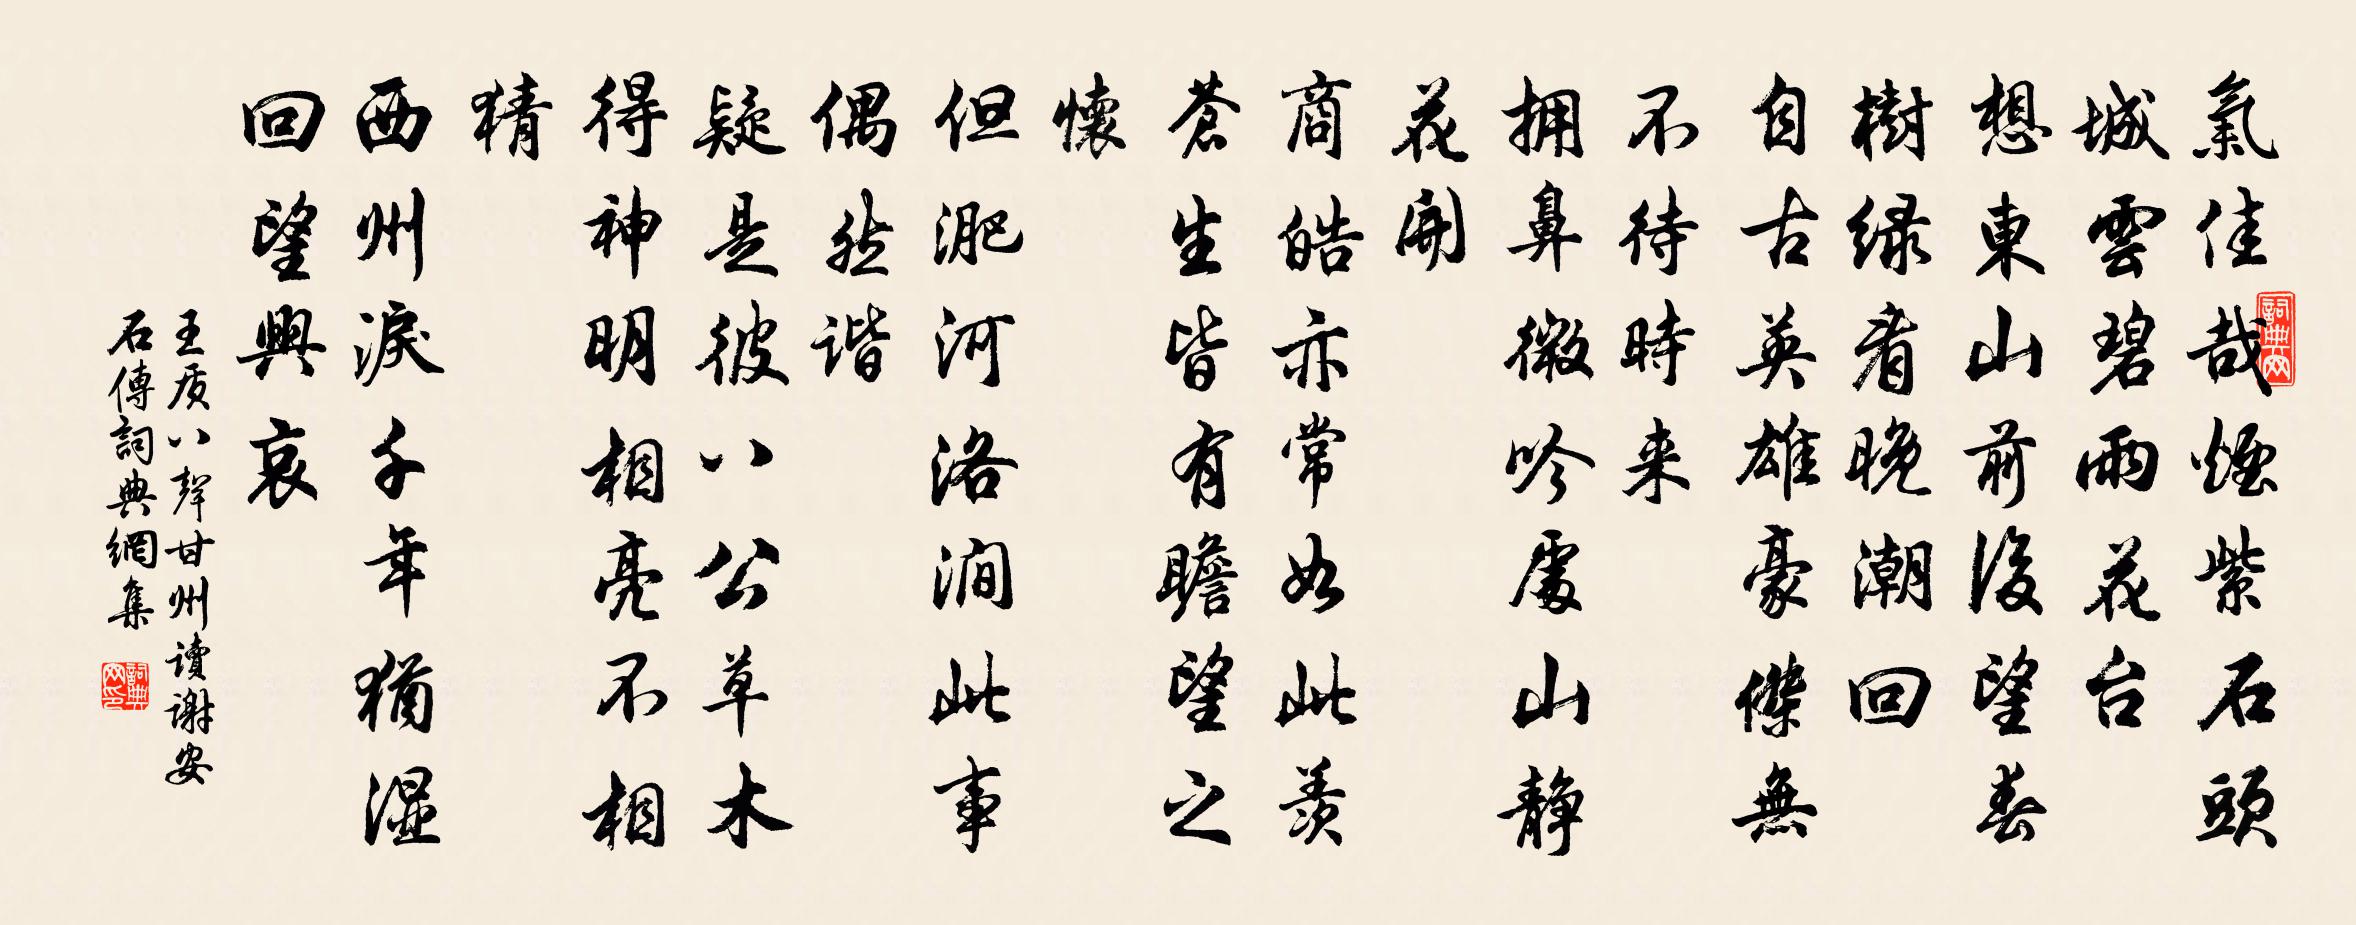 氣佳哉煙紫石頭
城雲碧雨花台
想東山前後望春
樹緑看晚潮回
自古英雄豪傑無
不待時来
拥鼻微吟處山静
花開
商皓亦常如此羨
蒼生皆有瞻望之
懷
但淝河洛澗此事
偶然谐
疑是彼八公草木
得神明相亮不相
猜
西州淚千年猶湿
回望興哀
王质八聲甘州讀謝安
石傳詞典網集
詞典网
詞典网印